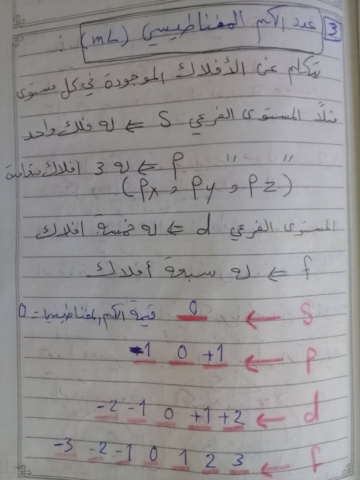 3 عدد الكم المغناطيسي (mL) :
يتكلم عن الأفلاك الموجودة في كل مستوى
مثلاً المستوى الفرعي S ⇐ له فلك واحد
" " P ⇐ له 3 افلاك متعامدة
(Px و Py و Pz)
المستوى الفرعي d ⇐ له خمسة افلاك
f ⇐ له سبعة أفلاك
S ← 0 قيمة الكم المغناطيسي = 0
P ← -1 0 +1
d ← -2 -1 0 +1 +2
f ← -3 -2 -1 0 1 2 3